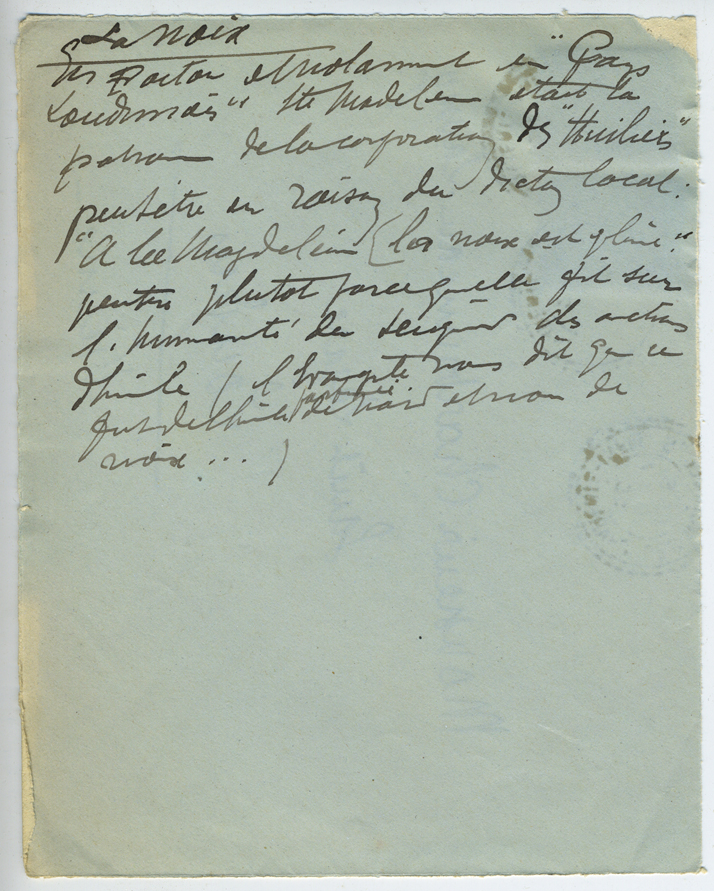 La Noix
En Poitou et notamment en "Pays
Loudunois" Ste Madeleine était la
patronne de la corporation des "Huiliers"
peut être en raison du dicton local :
"A la Magdeleine la noix est pleine."
peut être plutôt parce quelle fit sur
l'humanité du Seigneur des onctions
d'huile ( l'Evangile nous dit que ce
fut de l'huile parfumée de nard et non de
noix ... )